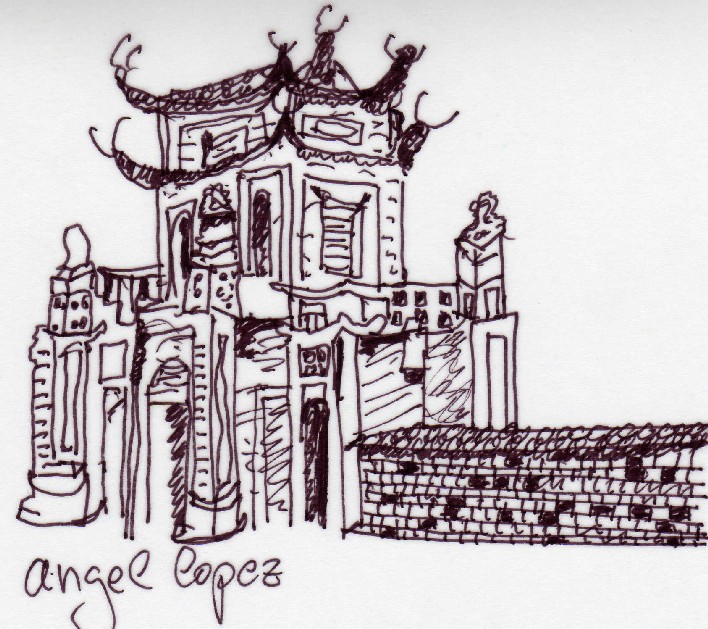 angel lopez